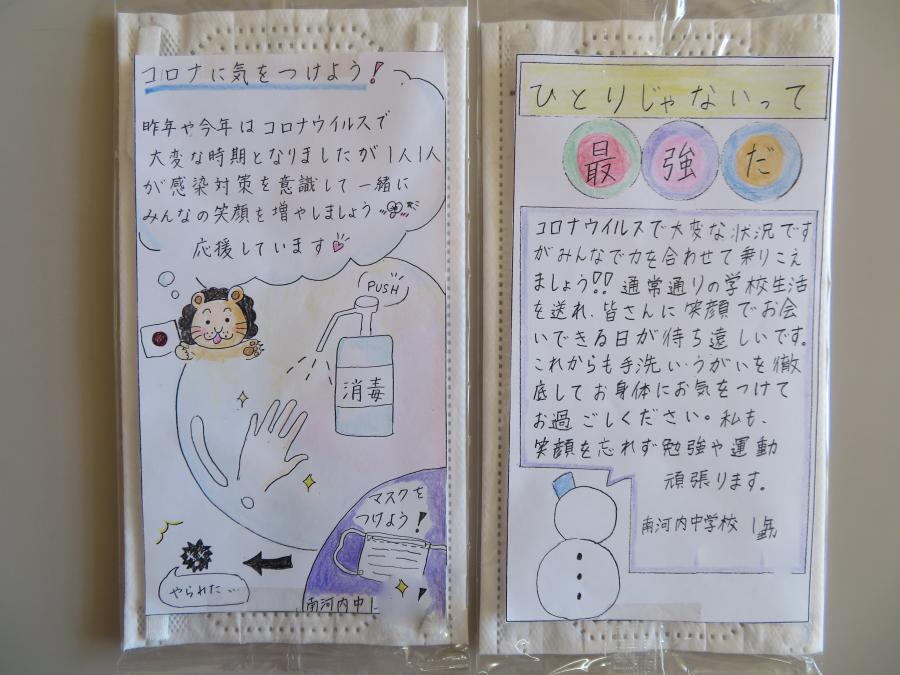 コロナに気をつけよう!
昨年や今年はコロナウイルスで
大変な時期となりましたが1人1人
が感染対策を意識して一緒に
みんなの笑顔を増やしましょう
応援しています
PUSH
消毒
マスクを
つけよう!
やられた…
南河内中1
ひとりじゃないって
最強だ
コロナウイルスで大変な状況です
がみんなで力を合わせて乗りこえ
ましょう!! 通常通りの学校生活
を送れ、皆さんに笑顔でお会
いできる日が待ち遠しいです。
これからも手洗い・うがいを徹
底してお身体にお気をつけて
お過ごしください。私も、
笑顔を忘れず勉強や運動
頑張ります。
南河内中学校 1年